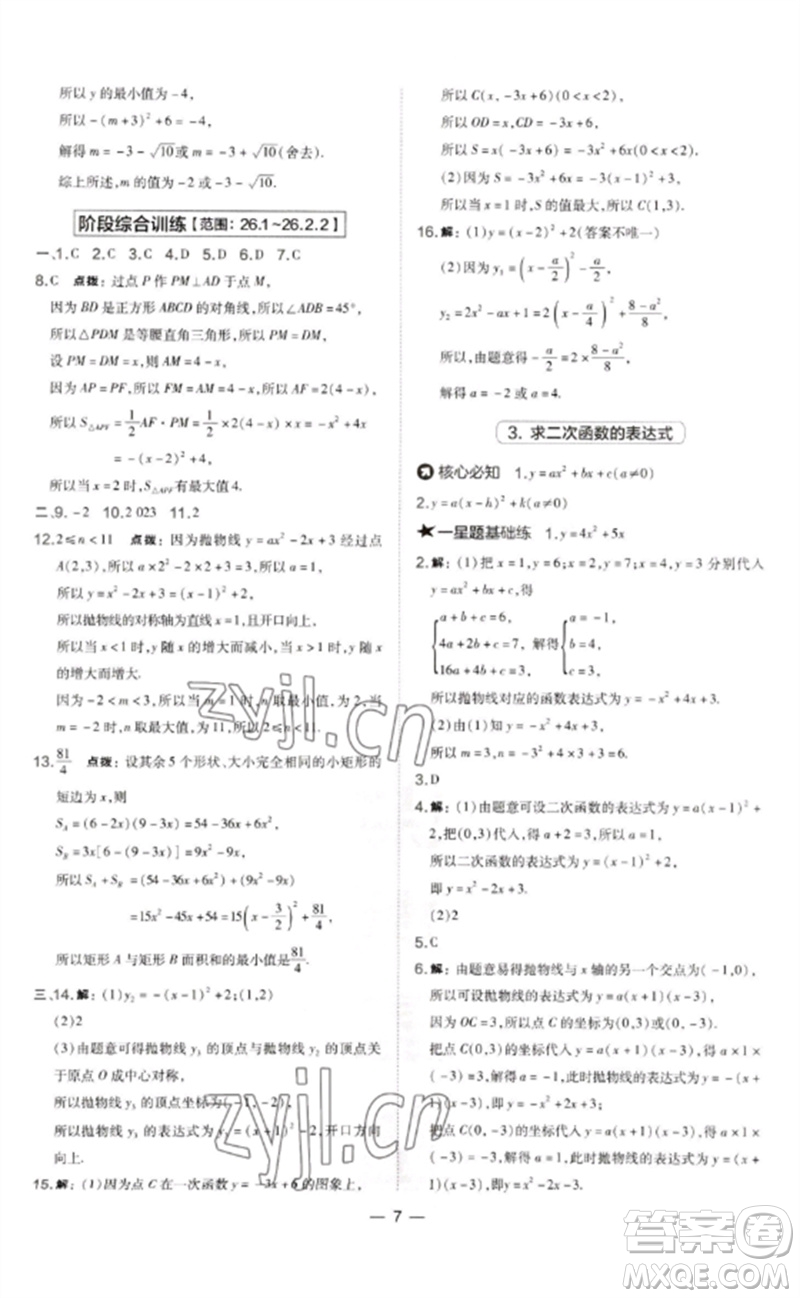 所以 y 的最小值为 -4,
所以 -(m+3)²+6=-4,
解得 m=-3-√10或 m=-3+√10(舍去).
综上所述,m 的值为 -2 或 -3-√10.
阶段综合训练【范围：26.1~26.2.2】
一、1.C 2.C 3.C 4.D 5.D 6.D 7.C
8.C 点拨：过点 P 作 PM⊥AD 于点 M,
因为 BD 是正方形 ABCD 的对角线,所以∠ADB=45°,
所以△PDM 是等腰直角三角形,所以 PM=DM,
设 PM=DM=x,则 AM=4-x,
因为 AP=PF,所以 FM=AM=4-x,
所以 S△APF=1/2 AF·PM=1/2×2(4-x)·x=-x²+4x
=-(x-2)²+4,
所以当 x=2 时,S△APF 有最大值 4.
二、9.-2 10.2 023 11.2
12.2≤n<11 点拨：因为抛物线 y=ax²-2x+3 经过点
A(2,3),所以 a×2²-2×2+3=3,所以 a=1,
所以 y=x²-2x+3=(x-1)²+2,
所以抛物线的对称轴为直线 x=1,且开口向上,
所以当 x<1 时,y 随 x 的增大而减小,当 x>1 时,y 随 x
的增大而增大.
因为 -2<m<3,所以当 m=1 时,n 取最小值,为 2,当
m=-2 时,n 取最大值,为 11,所以 2≤n<11.
13.81/4 点拨：设其余 5 个形状、大小完全相同的小矩形的
短边为 x,则
S_A=(6-2x)(9-3x)=54-36x+6x²,
S_B=3x[6-(9-3x)]=9x²-9x,
所以 S_A+S_B=(54-36x+6x²)+(9x²-9x)
=15x²-45x+54=15(x-3/2)²+81/4,
所以矩形 A 与矩形 B 面积和的最小值是 81/4.
三、14.解：(1)y₂=-(x-1)²+2;(1,2)
(2)2
(3)由题意可得抛物线 y₃ 的顶点与抛物线 y₂ 的顶点关
于原点 O 成中心对称,
所以抛物线 y₃ 的顶点坐标为(-1,-2),
所以抛物线 y₃ 的表达式为 y=(x+1)²-2,开口方向
向上.
15.解：(1)因为点 C 在一次函数 y=-3x+6 的图象上,
所以 C(x,-3x+6)(0<x<2),
所以 OD=x,CD=-3x+6,
所以 S=x(-3x+6)=-3x²+6x(0<x<2).
(2)因为 S=-3x²+6x=-3(x-1)²+3,
所以当 x=1 时,S 的值最大,所以 C(1,3).
16.解：(1)y=(x-2)²+2(答案不唯一)
(2)因为 y₁=(x-a/2)²-a²/4,
y₂=2x²-ax+1=2(x-a/4)²+(8-a²)/8,
所以,由题意得 -a²/4=2×(8-a²)/8,
解得 a=-2 或 a=4.
3. 求二次函数的表达式
核心必知 1.y=ax²+bx+c(a≠0)
2.y=a(x-h)²+k(a≠0)
★一星题基础练 1.y=4x²+5x
2.解：(1)把 x=1,y=6;x=2,y=7;x=4,y=3 分别代入
y=ax²+bx+c,得
{a+b+c=6, {a=-1,
{4a+2b+c=7, 解得{b=4,
{16a+4b+c=3, {c=3.
所以抛物线对应的函数表达式为 y=-x²+4x+3.
(2)由(1)知 y=-x²+4x+3,
所以 y=-x²+4x+3=-(x-2)²+7.
3.D
4.解：(1)由题意可设二次函数的表达式为 y=a(x-1)²+
2,把(0,3)代入,得 a+2=3,所以 a=1,
所以二次函数的表达式为 y=(x-1)²+2,
即 y=x²-2x+3.
(2)2
5.C
6.解：由题意易得抛物线与 x 轴的另一个交点为(-1,0),
所以可设抛物线的表达式为 y=a(x+1)(x-3),
因为 OC=3,所以点 C 的坐标为(0,3)或(0,-3).
把点 C(0,3)的坐标代入 y=a(x+1)(x-3),得 a×1×
(-3)=3,解得 a=-1,此时抛物线的表达式为 y=
-(x+1)(x-3),即 y=-x²+2x+3;
把点 C(0,-3)的坐标代入 y=a(x+1)(x-3),得 a×1×
(-3)=-3,解得 a=1,此时抛物线的表达式为 y=
— 7 —
zyjl.cn
zyjl.cn
答案卷
MXQE.COM